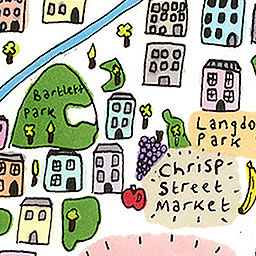 Bartlett
Park
Langdo
Park
Chrisp
Street
Market